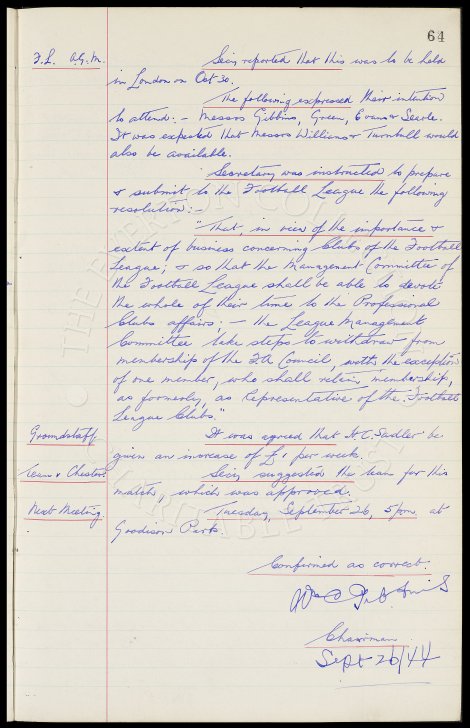 64
F.L. A.G.M. Secy reported that this was to be held
in London on Oct 30.
The following expressed their intention
to attend: - Messrs Gibbins, Green, Evans & Searle.
It was expected that Messrs Williams & Turnbull would
also be available.
Secretary was instructed to prepare
& submit to the Football League the following
resolution: -
"That in view of the importance &
extent of business concerning Clubs of the Football
League; & so that the Management Committee of
the Football League shall be able to devote
the whole of their time to the Professional
Clubs affairs; - the League Management
Committee take steps to withdraw from
membership of the FA Council, with the exception
of one member, who shall retain membership,
as formerly, as Representative of the Football
League Clubs."
Groundstaff It was agreed that H.C. Sadler be
given an increase of £1 per week.
Team v Chester. Secy suggested the team for this
match, which was approved.
Next Meeting Tuesday, September 26, 5pm. at
Goodison Park.
Confirmed as correct.
Chairman
Sept 26/44
THE EVERTON COLLECTION CHARITABLE TRUST